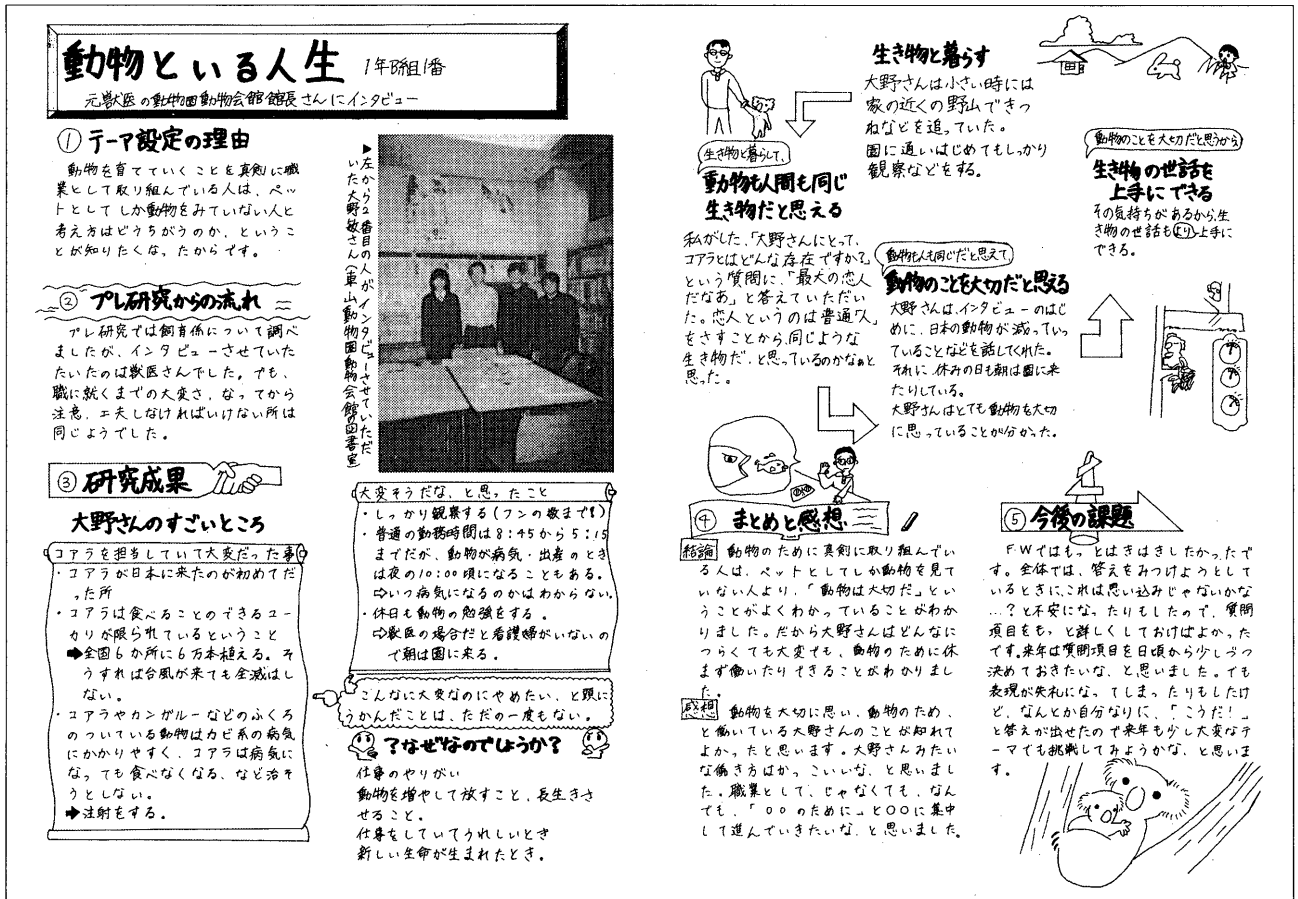 動物といる人生 1年B組1番
元獣医の動物園動物会館館長さんにインタビュー
① テーマ設定の理由
動物を育てていくことを真剣に職
業として取り組んでいる人は、ペッ
トとしてしか動物をみていない人と
考え方はどうちがうのか、というこ
とが知りたくなったからです。
② プレ研究からの流れ
プレ研究では飼育係について調べ
ましたが、インタビューさせていた
だいたのは獣医さんでした。でも、
職に就くまでの大変さ、なってから
注意、工夫しなければいけない所は
同じようでした。
▶左から2番目の人がインタビューさせていただ
いた大野敏さん(東山動物園動物会館の図書室)
③ 研究成果
大野さんのすごいところ
コアラを担当していて大変だった事
・コアラが日本に来たのが初めてだ
った所
・コアラは食べることのできるユー
カリが限られているということ
➡全国6か所に6万本植える。そ
うすれば台風が来ても全滅はし
ない。
・コアラやカンガルーなどのふくろ
のついている動物はカビ系の病気
にかかりやすく、コアラは病気に
なっても食べなくなる、など治そ
うとしない。
➡注射をする。
大変そうだな、と思ったこと
・しっかり観察する(フンの数まで!)
・普通の勤務時間は8:45から5:15
までだが、動物が病気・出産のとき
は夜の10:00頃になることもある。
⇨いつ病気になるのかはわからない。
・休日も動物の勉強をする。
⇨獣医の場合だと看護婦がいないの
で朝は園に来る。
こんなに大変なのにやめたい、と頭に
うかんだことは、ただの一度もない。
?なぜなのでしょうか?
仕事のやりがい
動物を増やして放すこと、長生きさ
せること。
仕事をしていてうれしいとき
新しい生命が生まれたとき。
生き物と暮らす
大野さんは小さい時には
家の近くの野山できつ
ねなどを追っていた。
園に通いはじめてもしっかり
観察などをする。
生き物と暮らして、
動物も人間も同じ
生き物だと思える
私がした、「大野さんにとって、
コアラとはどんな存在ですか?」
という質問に、「最大の恋人
だなあ」と答えていただい
た。恋人というのは普通「人」
をさすことから、同じような
生き物だ、と思っているのかなぁと
思った。
動物も人も同じだと思えて、
動物のことを大切だと思える
大野さんは、インタビューのはじ
めに、日本の動物が減っていっ
ていることなどを話してくれた。
それに、休みの日も朝は園に来
たりしている。
大野さんはとても動物を大切
に思っていることが分かった。
動物のことを大切だと思うから
生き物の世話を
上手にできる
その気持ちがあるから、生
き物の世話もより上手に
できる。
④ まとめと感想
結論 動物のために真剣に取り組んでい
る人は、ペットとしてしか動物を見て
いない人より、「動物は大切だ」とい
うことがよくわかっていることがわか
りました。だから大野さんはどんなに
つらくても大変でも、動物のために休
まず働いたりできることがわかりまし
た。
感想 動物を大切に思い、動物のため、
と働いている大野さんのことが知れて
よかったと思います。大野さんみたい
な働き方はかっこいいな、と思いまし
た。職業として、じゃなくても、なん
でも、「○○のために」と○○に集中
して進んでいきたいな、と思いました。
⑤ 今後の課題
FWではもっとはきはきしたかったで
す。全体では、答えをみつけようとして
いるときに、これは思い込みじゃないかな
…?と不安になったりもしたので、質問
項目をもっと詳しくしておけばよかった
です。来年は質問項目を日頃から少しづつ
決めておきたいな、と思いました。でも
表現が失礼になってしまったりもしたけ
ど、なんとか自分なりに、「こうだ!」
と答えが出せたので来年も少し大変なテ
ーマでも挑戦してみようかな、と思いま
す。